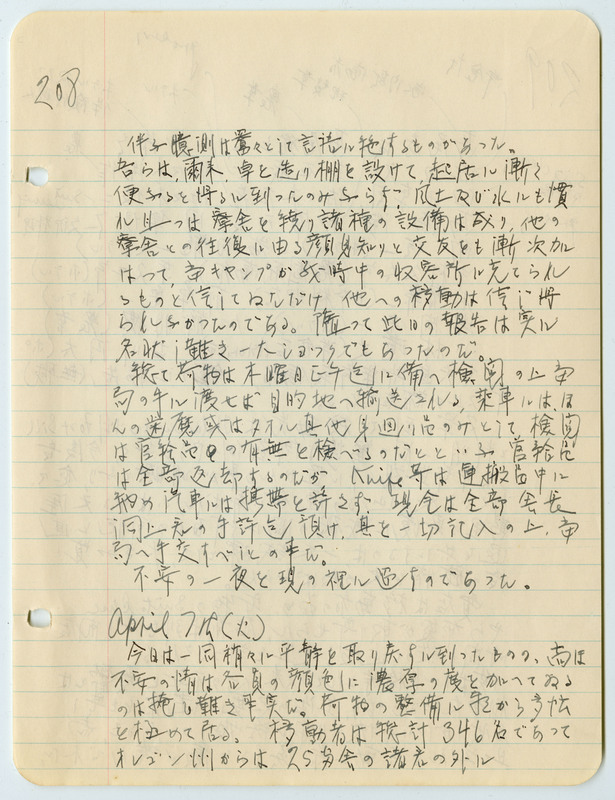 208
伴ふ臆測は喬々として言語に絶するものがあった。
吾らは、爾来、卓を造り棚を設けて、起居に漸く
便なるを得るに到ったのみならず、風土及び水にも慣
れ且つは舎を繞り諸種の設備は成り、他の
舎との往復に由る顔見知りと交友をも漸次加
はつて、当キャンプが戦時中の収容所に充てられ
るものと信じてゐただけ、他への移動は信じ得
られなかつたのである。随って此日の報告は実に
名状し難き一大ショックでもあったのだ。
総て荷物は木曜日正午迄に備へ検閲の上当
局の手に渡せば目的地へ輸送される、築車には、ほ
んの歯磨或はタオル其他身廻り品のみとして、検閲
は官給品の有無を検べるのだといふ、官給品
は全部返却するのだが Knife等は運搬品中に
納め汽車には携帯を許さず、現金は全部会長
洞上氏の手許迄預け、其を一切記入の上、当
局へ手交すべしとの事だ。
不安の一夜を現の裡に過すのであった。
April 7th (火)
今日は一同稍々に平静を取り戻すに到ったものの、尚ほ
不安の情は各員の顔色に濃厚の度を加へてゐる
のは掩ひ難き事実だ。荷物の整備に朝から多忙
を極めて居る。移動者は総計346名であって
オレゴン州からは25号舎の諸君の外に